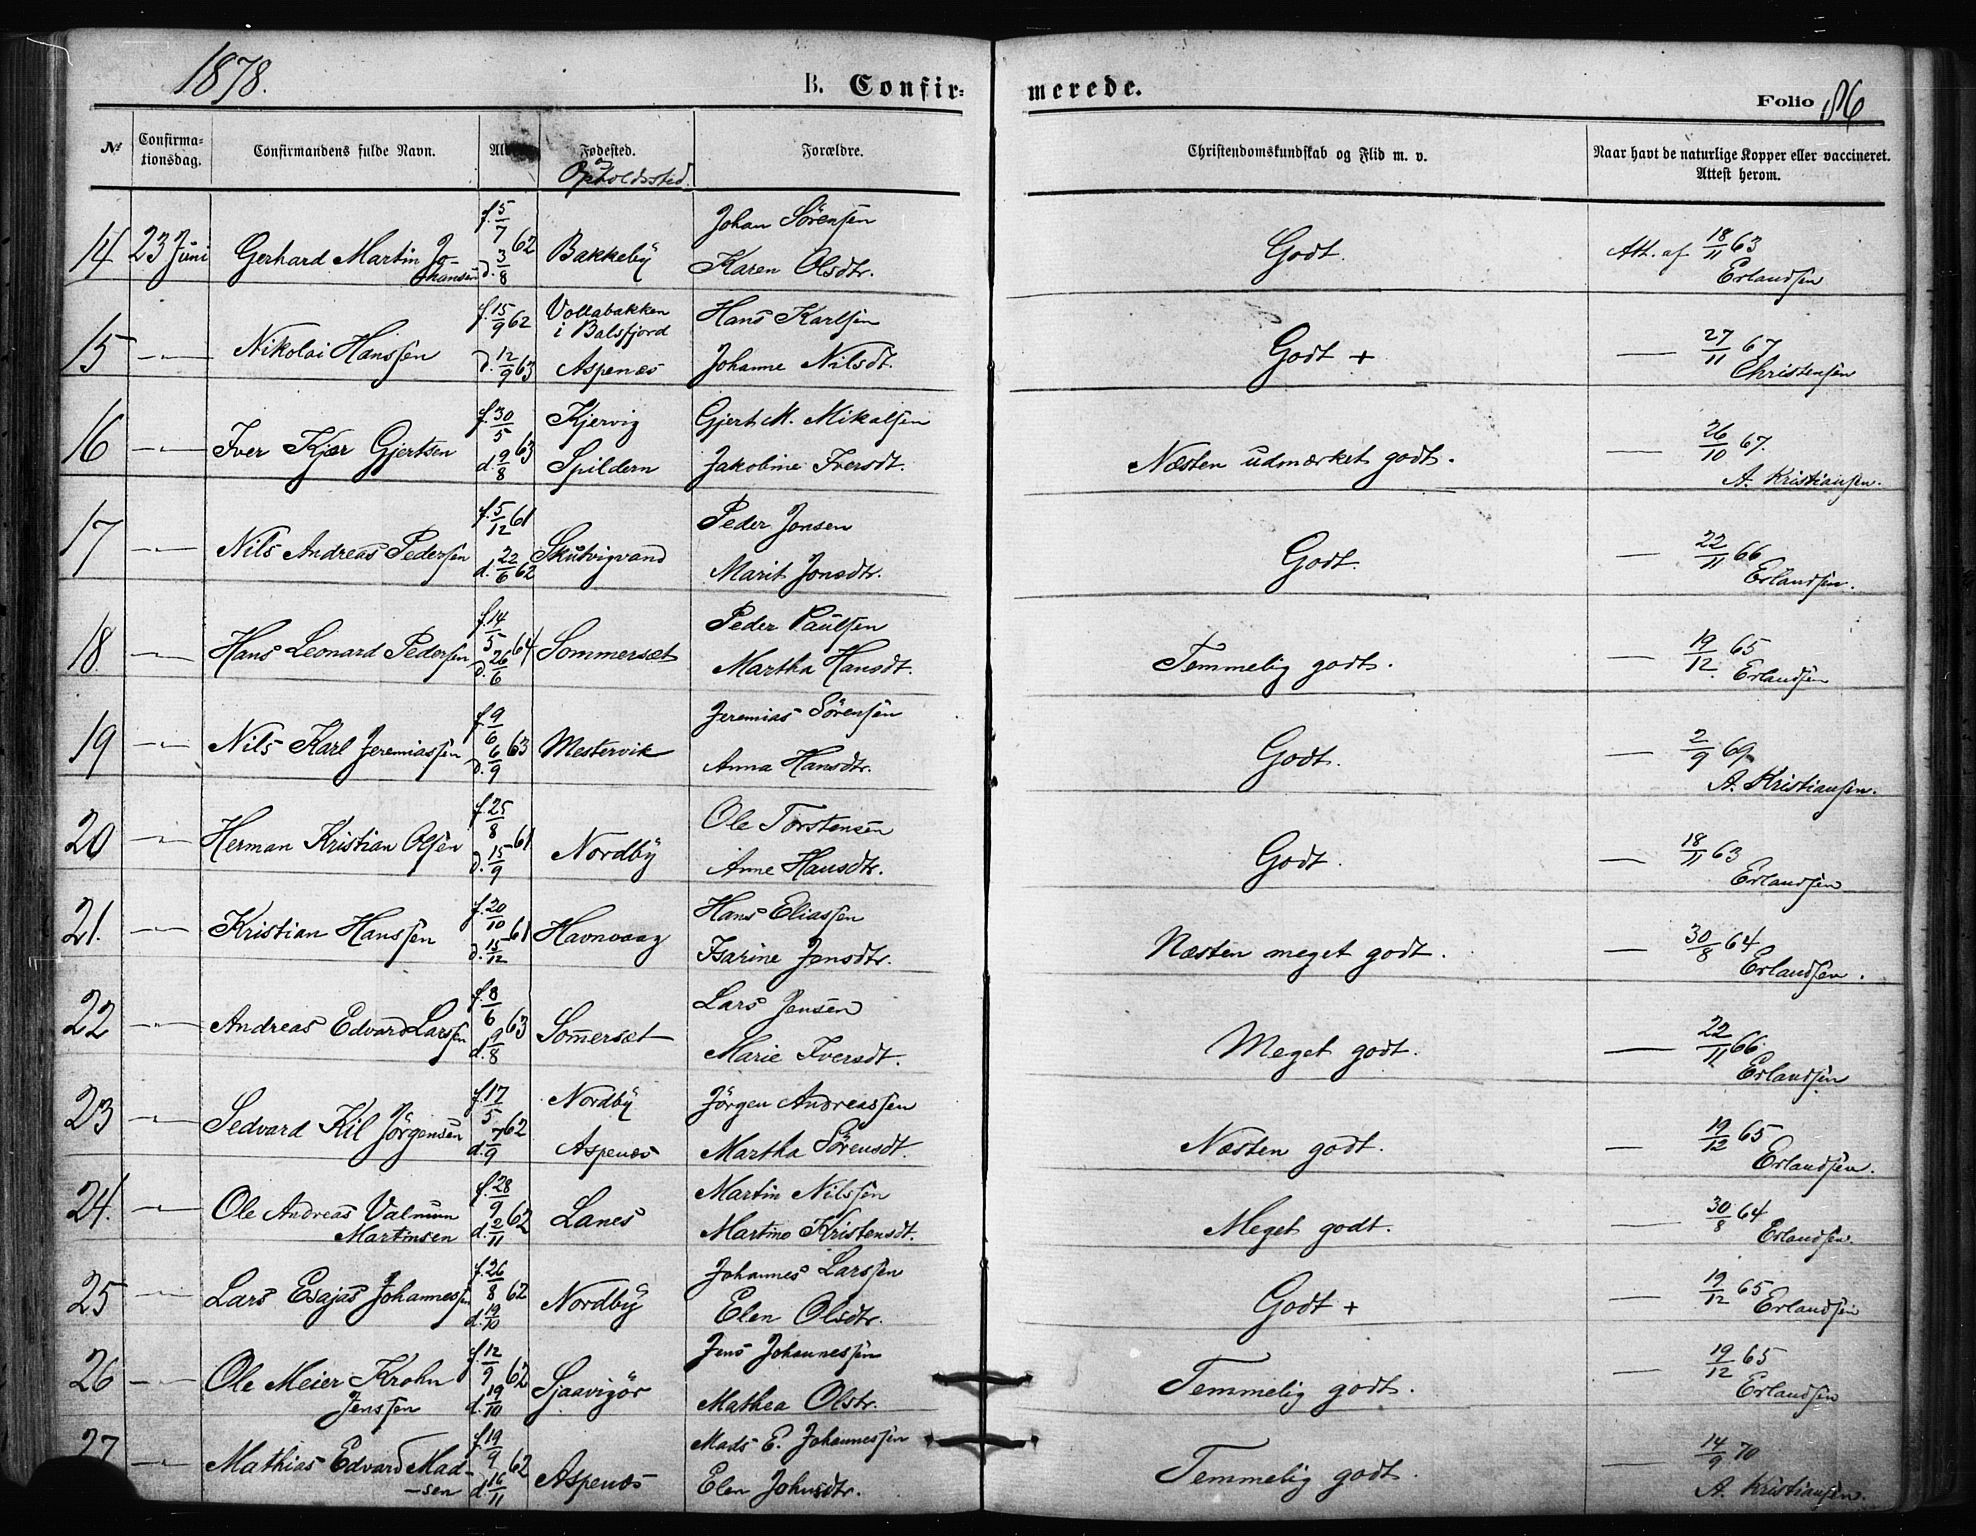 1878.
B. Confir-
merede.
Folio 86
№
Confirma-
tionsdag.
Confirmandens fulde Navn.
Fødested.
Opholdssted.
Forældre.
Christendomskundskab og Flid m. v.
Naar havt de naturlige Kopper eller vaccineret.
Attest herom.
14 23 Juni Gerhard Martin Jo-
hansen
f. 5/7 62
d. 3/8
Bakkeby
Johan Sörensen
Karen Olsdtr.
Godt.
Att. af 18/11 63
Erlandsen
15 -"- Nikolai Hanssen
f. 15/9 62
d. 12/9 63
Vollabakken
i Balsfjord
Aspenæs
Hans Karlsen
Johanne Nilsdt.
Godt +
— 27/11 67
Christensen
16 -"- Iver Kjær Gjertsen
f. 30/5 63
d. 9/8
Kjervig
Spildern
Gjert M. Mikalsen
Jakobine Iversdt.
Næsten udmærket godt.
— 26/10 67.
A. Kristiansen.
17 -"- Nils Andreas Pedersen
f. 5/12 61
d. 22/6 62
Skutvigvand
Peder Jonsen
Marit Jonsdtr.
Godt.
— 22/11 66
Erlandsen.
18. -"- Hans Leonard Pedersen
f. 14/5 64
d. 26/6
Sommersæt
Peder Paulsen
Martha Hansdt.
Temmelig godt.
— 19/12. 65
Erlandsen
19 -"- Nils Karl Jeremiassen
f. 9/6 63
d. 6/9
Mestervik
Jeremias Sörensen
Anna Hansdtr.
Godt.
— 2/9 69
A. Kristiansen.
20 -"- Herman Kristian Olsen
f. 25/8 61
d. 15/9
Nordby
Ole Torstensen
Anne Hansdtr.
Godt.
— 18/11 63
Erlandsen
21. -"- Kristian Hanssen
f. 20/10 61
d. 15/12
Havnvaag
Hans Eliassen
Isarine Jensdtr.
Næsten meget godt.
— 30/8 64
Erlandsen.
22 -"- Andreas Edvard Larssen
f. 8/6 63
d. 9/8
Somersæt
Lars Jensen
Marie Iversdt.
Meget godt.
— 22/11 66.
Erlandsen
23 -"- Sedvard Kil Jörgensen
f. 17/5 62
d. 7/9
Nordby
Aspenæs
Jörgen Andreassen
Martha Sörensdt.
Næsten godt.
— 19/12 65
Erlandsen.
24. -"- Ole Andreas
Martinsen
f. 28/9 62
d. 2/11
Lanes
Martin Nilssen
Kristensdt.
Meget godt.
— 30/8 64
Erlandsen.
25 -"- Lars Esajas Johannessen
f. 26/8 62
d. 19/10
Nordby
Johannes Larssen
Elen Olsdtr.
Godt +
— 19/12 65
Erlandsen
26 -"- Ole Meier Krohn
Jenssen
f. 12/9 62
d. 19/10
Jens Johannessen
Mathea Olstr.
Temmelig godt.
— 19/12 65
Erlandsen
27 -"- Mathias Edvard Mad-
-sen
f. 19/9 62
d. 16/11
Aspenæs
Mads E. Johannessen
Elen Johnsdtr.
Temmelig godt.
— 14/9 70
A. Kristiansen.